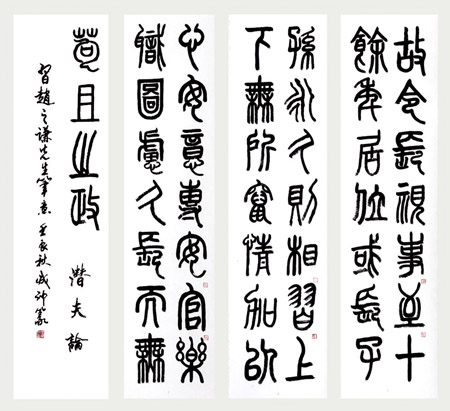 故令長視事至十
餘年居位或長子
孫永久則相習上
下無所竄情加以
心安意專安官樂
職圖慮久長而無
苟且之政 潛夫論
習趙之謙先生筆意 亥秋